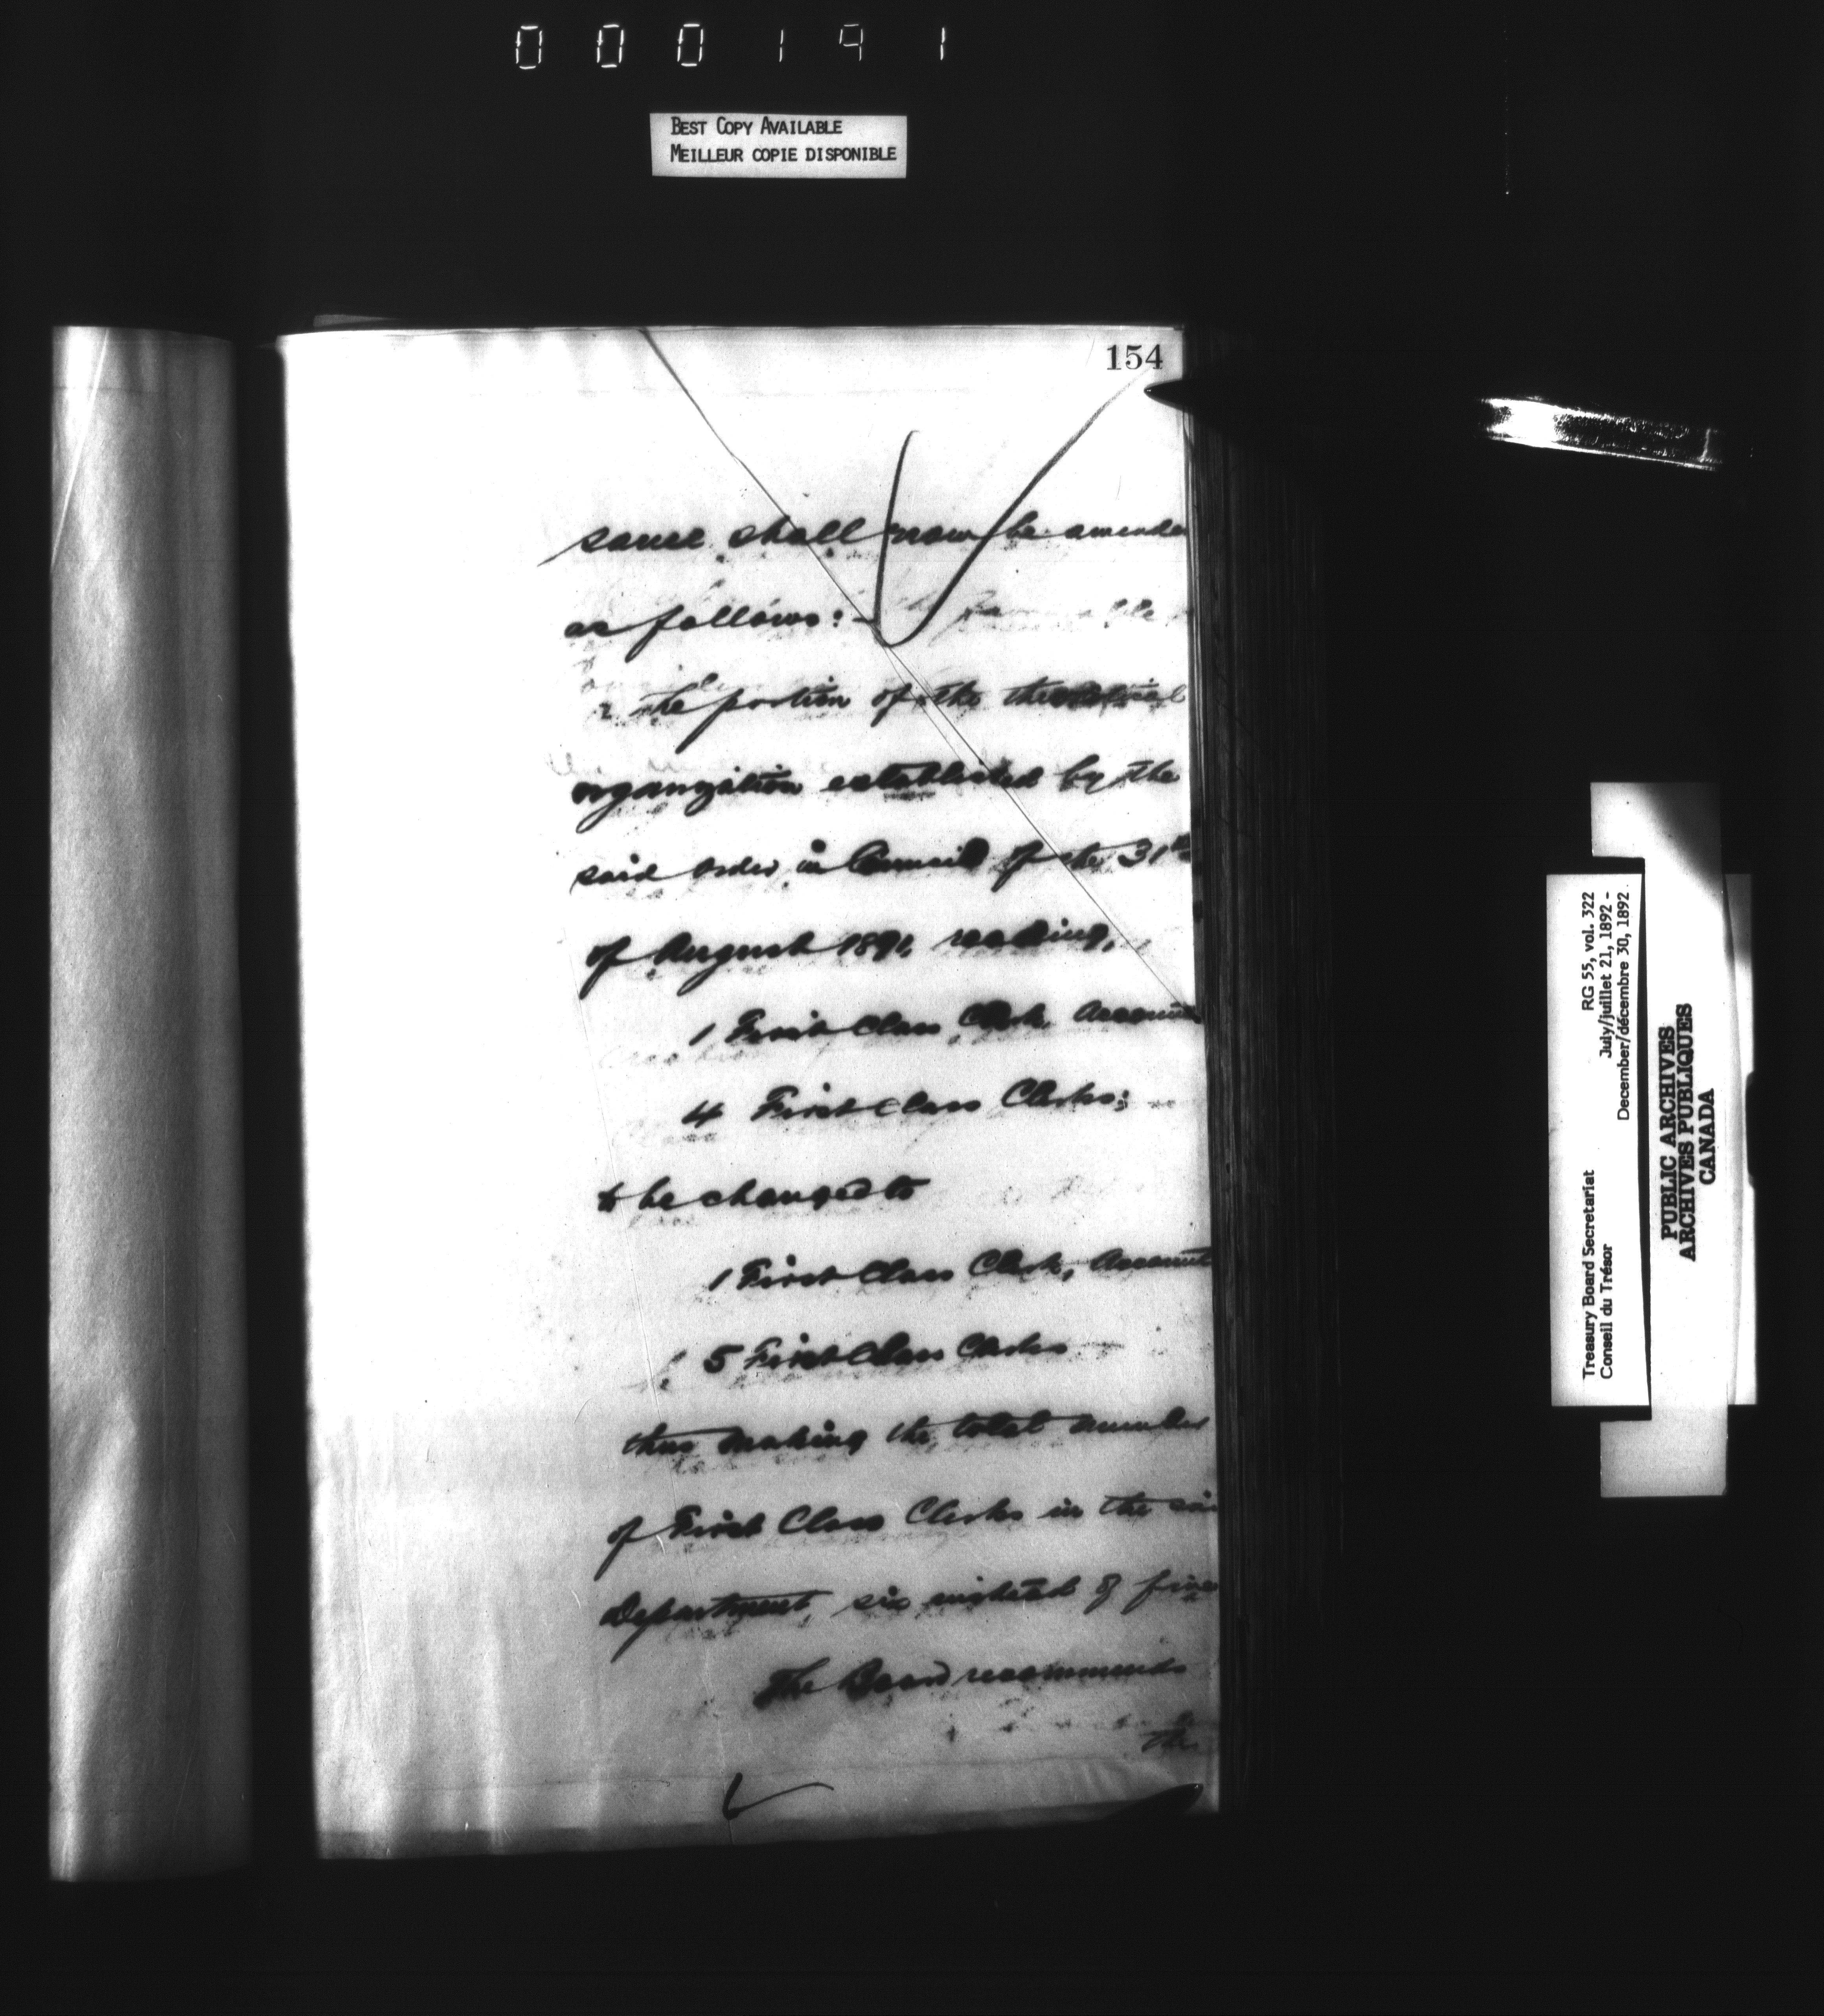 000191
BEST COPY AVAILABLE
MEILLEUR COPIE DISPONIBLE
154
same shall now be amended
as follows:-
The portion of the theoretical
organization established by the
said order in Council of the 31st
of August 1891, reading,
1 First Class Clerk, Account
4 First Class Clerks;
to be changed to
1 First Class Clerk, Account
5 First Class Clerks
thus making the total number
of First Class Clerks in the said
Department, six instead of five
The Board recommends
the
Treasury Board Secretariat RG 55, vol. 322
Conseil du Trésor July/juillet 21, 1892 -
December/décembre 30, 1892
PUBLIC ARCHIVES
ARCHIVES PUBLIQUES
CANADA